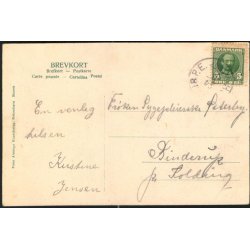 BREVKORT
Brefkort — Postkarte
Carte postale — Cartolina Postal
DANMARK
5 5
En venlig
hilsen
Kirstine
Jensen
Frøken Sygeplejerske
Binderup
pr Kolding